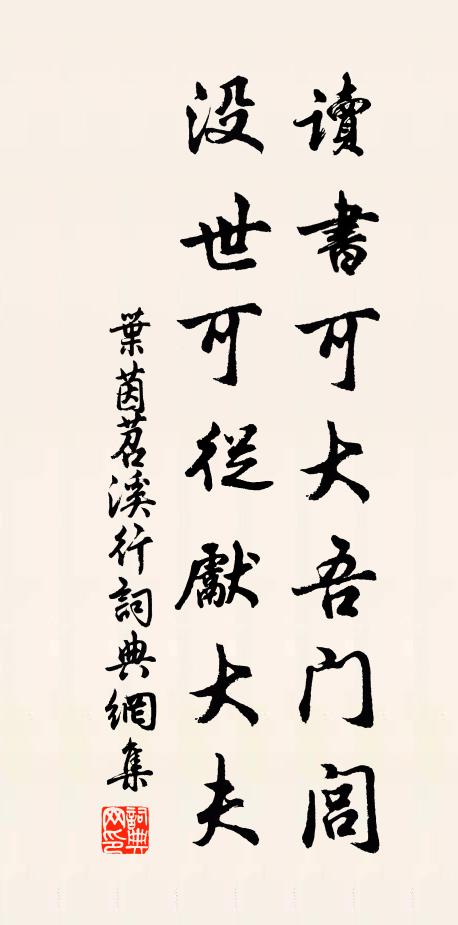 讀書可大吾门闾
没世可從獻大夫
葉茵苕溪行詞典網集
詞典网印